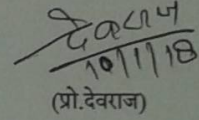 देवराज
10/1/18
(प्रो.देवराज)